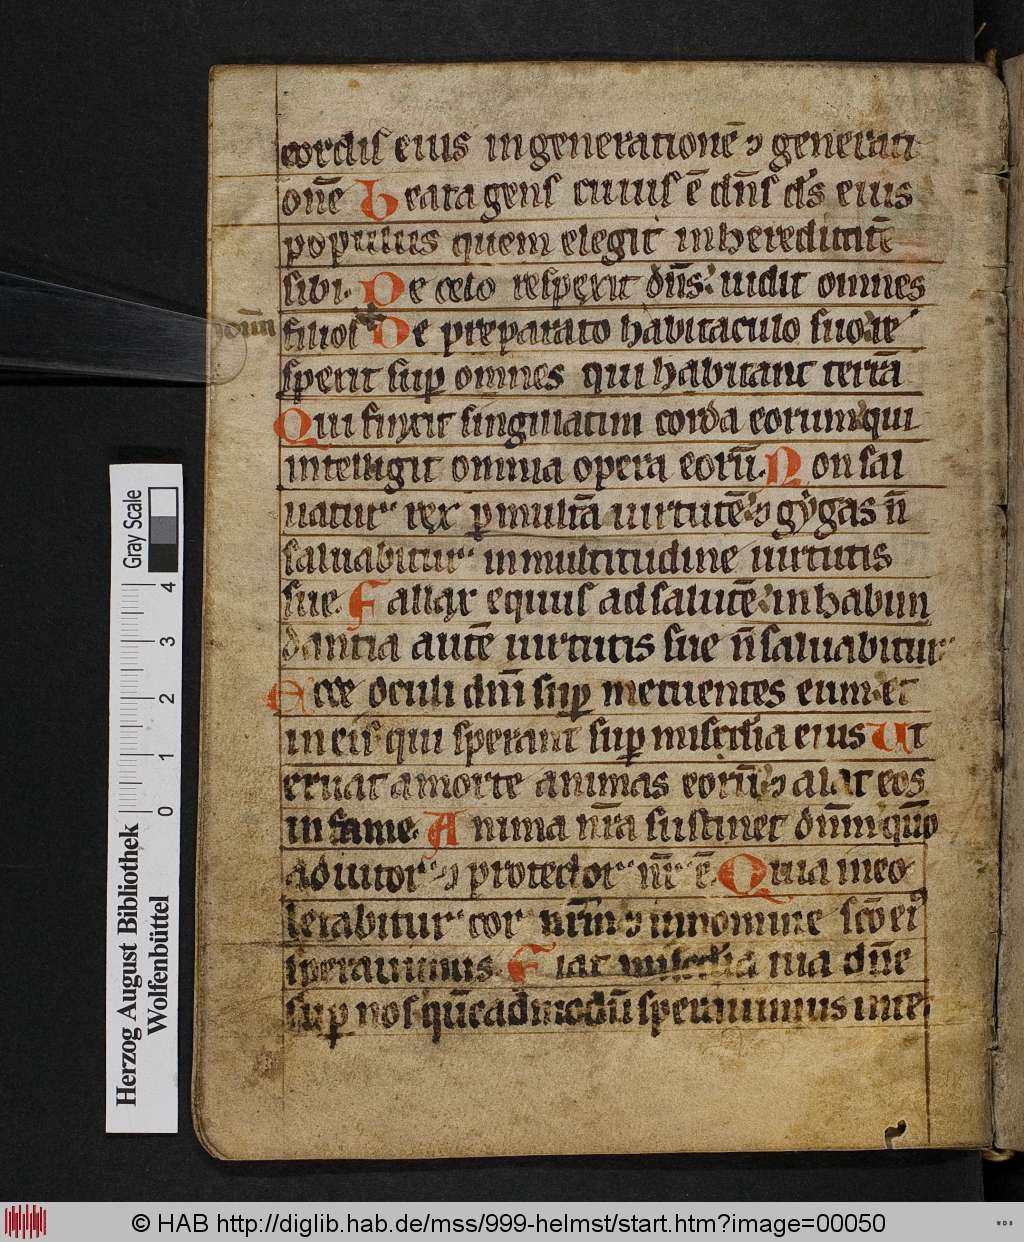 cordis eius in generationē ⁊ generati
onē Beata gens cuius ē dn̄s ds̄ eius
populus quem elegit in hereditatē
sibi. De celo respexit dn̄s: uidit omnes
filios
De preparato habitaculo suo: re
spexit suꝑ omnes qui habitant terrā
Qui finxit singillatim corda eorum: qui
intelligit omnia opera eorū. Non sal
uatur rex ꝑ multā uirtutē: ⁊ gygas n̄
saluabitur in multitudine uirtutis
sue. Fallax equus ad salutē: in habun
dantia autē uirtutis sue n̄ saluabitur
Ecce oculi dn̄i suꝑ metuentes eum: et
in eis qui sperant suꝑ misc̄dia eius Ut
eruat a morte animas eorū: ⁊ alat eos
in fame. Anima nr̄a sustinet dn̄m: qm̄
adiutor ⁊ protector nr̄ ē. Quia in eo
letabitur cor nr̄m ⁊ in nomine sc̄o ei9
sperauimus. Fiat misc̄dia tua dn̄e
suꝑ nos quēadmodū sperauimus in te.
Gray Scale
0 1 2 3 4
Herzog August Bibliothek
Wolfenbüttel
© HAB http://diglib.hab.de/mss/999-helmst/start.htm?image=00050